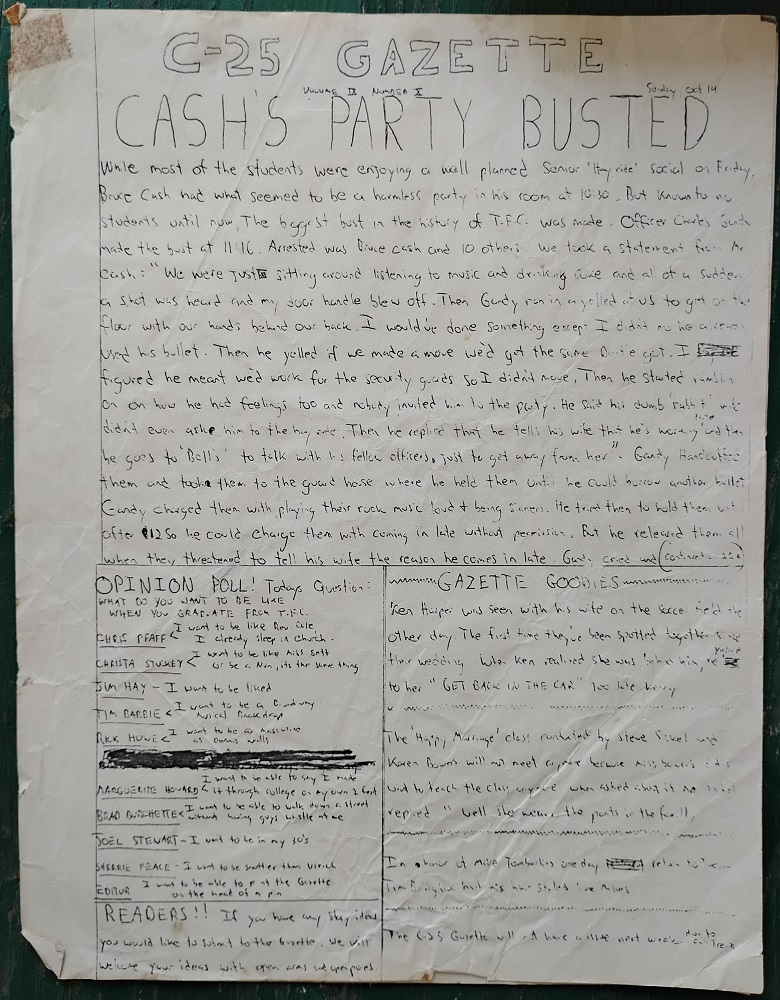 C-25 GAZETTE
VOLUME IX NUMBER X
Sunday Oct 14
CASH'S PARTY BUSTED
While most of the students were enjoying a well planned Senior "Hay ride" social on Friday,
Bruce Cash had what seemed to be a harmless party in his room at 10:30. But known to no
students until now, The biggest bust in the history of T.F.C. was made. Officer Charles Gandy
made the bust at 11:16. Arrested was Bruce Cash and 10 others. We took a statement from Mr
Cash: "We were just sitting around listening to music and drinking coke and all of a sudden
a shot was heard and my door handle blew off. Then Gandy ran in a yelled at us to get on the
floor with our hands behind our back. I would've done something except I didn't no he already
used his bullet. Then he yelled if we made a move we'd get the same got. I
figured he meant we'd work for the security guards so I didn't move. Then he started
on on how he had feelings too and nobody invited him to the party. He said his dumb wife
didn't even aske him to the hay ride. Then he replied that he tells his wife that he's working late and then
he goes to 'Bell's' to talk with his fellow officers, just to get away from her". Gandy Handcuffed
them and took them to the guard house where he held them until he could borrow another bullet
Gandy charged them with playing their rock music loud & being sinners. He tried then to hold them until
after 12 so he could charge them with coming in late without permission. But he released them all
when they threatened to tell his wife the reason he comes in late Gandy cried and (continued
OPINION POLL! Todays Question:
WHAT DO YOU WANT TO BE LIKE
WHEN YOU GRADUATE FROM T.F.C.
CHRIS PFAFF < I want to be like Rev Cole
I already sleep in church.
CHRISTA STUCKEY < I want to be like Miss Sett
or be a Nun, its the same thing
JIM HAY - I want to be liked
TIM BARBIE < I want to be a Broadway
Musical Backdrop
RICK HOWE < I want to be as masculine
as Donus Wells
MARGUERITE HOWARD < I want to be able to say I made
it through college on my own 2 feet
BRAD BURCHETTE < I want to be able to walk down a street
without having guys whistle at me
JOEL STEWART - I want to be in my 30's
SHERRIE PEACE - I want to be smaller than Ulrich
EDITOR I want to be able to put the Gazette
on the head of a pin
READERS!! If you have any story ideas
you would like to submit to the Gazette, we will
welcome your ideas with open arms
GAZETTE GOODIES
Ken Harper was seen with his wife on the soccer field the
other day. The first time they've been spotted together since
their wedding. When Ken realized she was behind him, he yelled
to her "GET BACK IN THE CAR" Too late
The 'Happy Marriage' class conducted by Steve Sickel and
Karen Bowers will not meet anymore because Miss Bowers
want to teach the class anymore when asked about it
replied "Well she wears the pants in the family
In honor of Mike Tomberlin one day return to
Tim had his hair styled like Mikes
The C-25 Gazette will not have a issue next week due to fall break